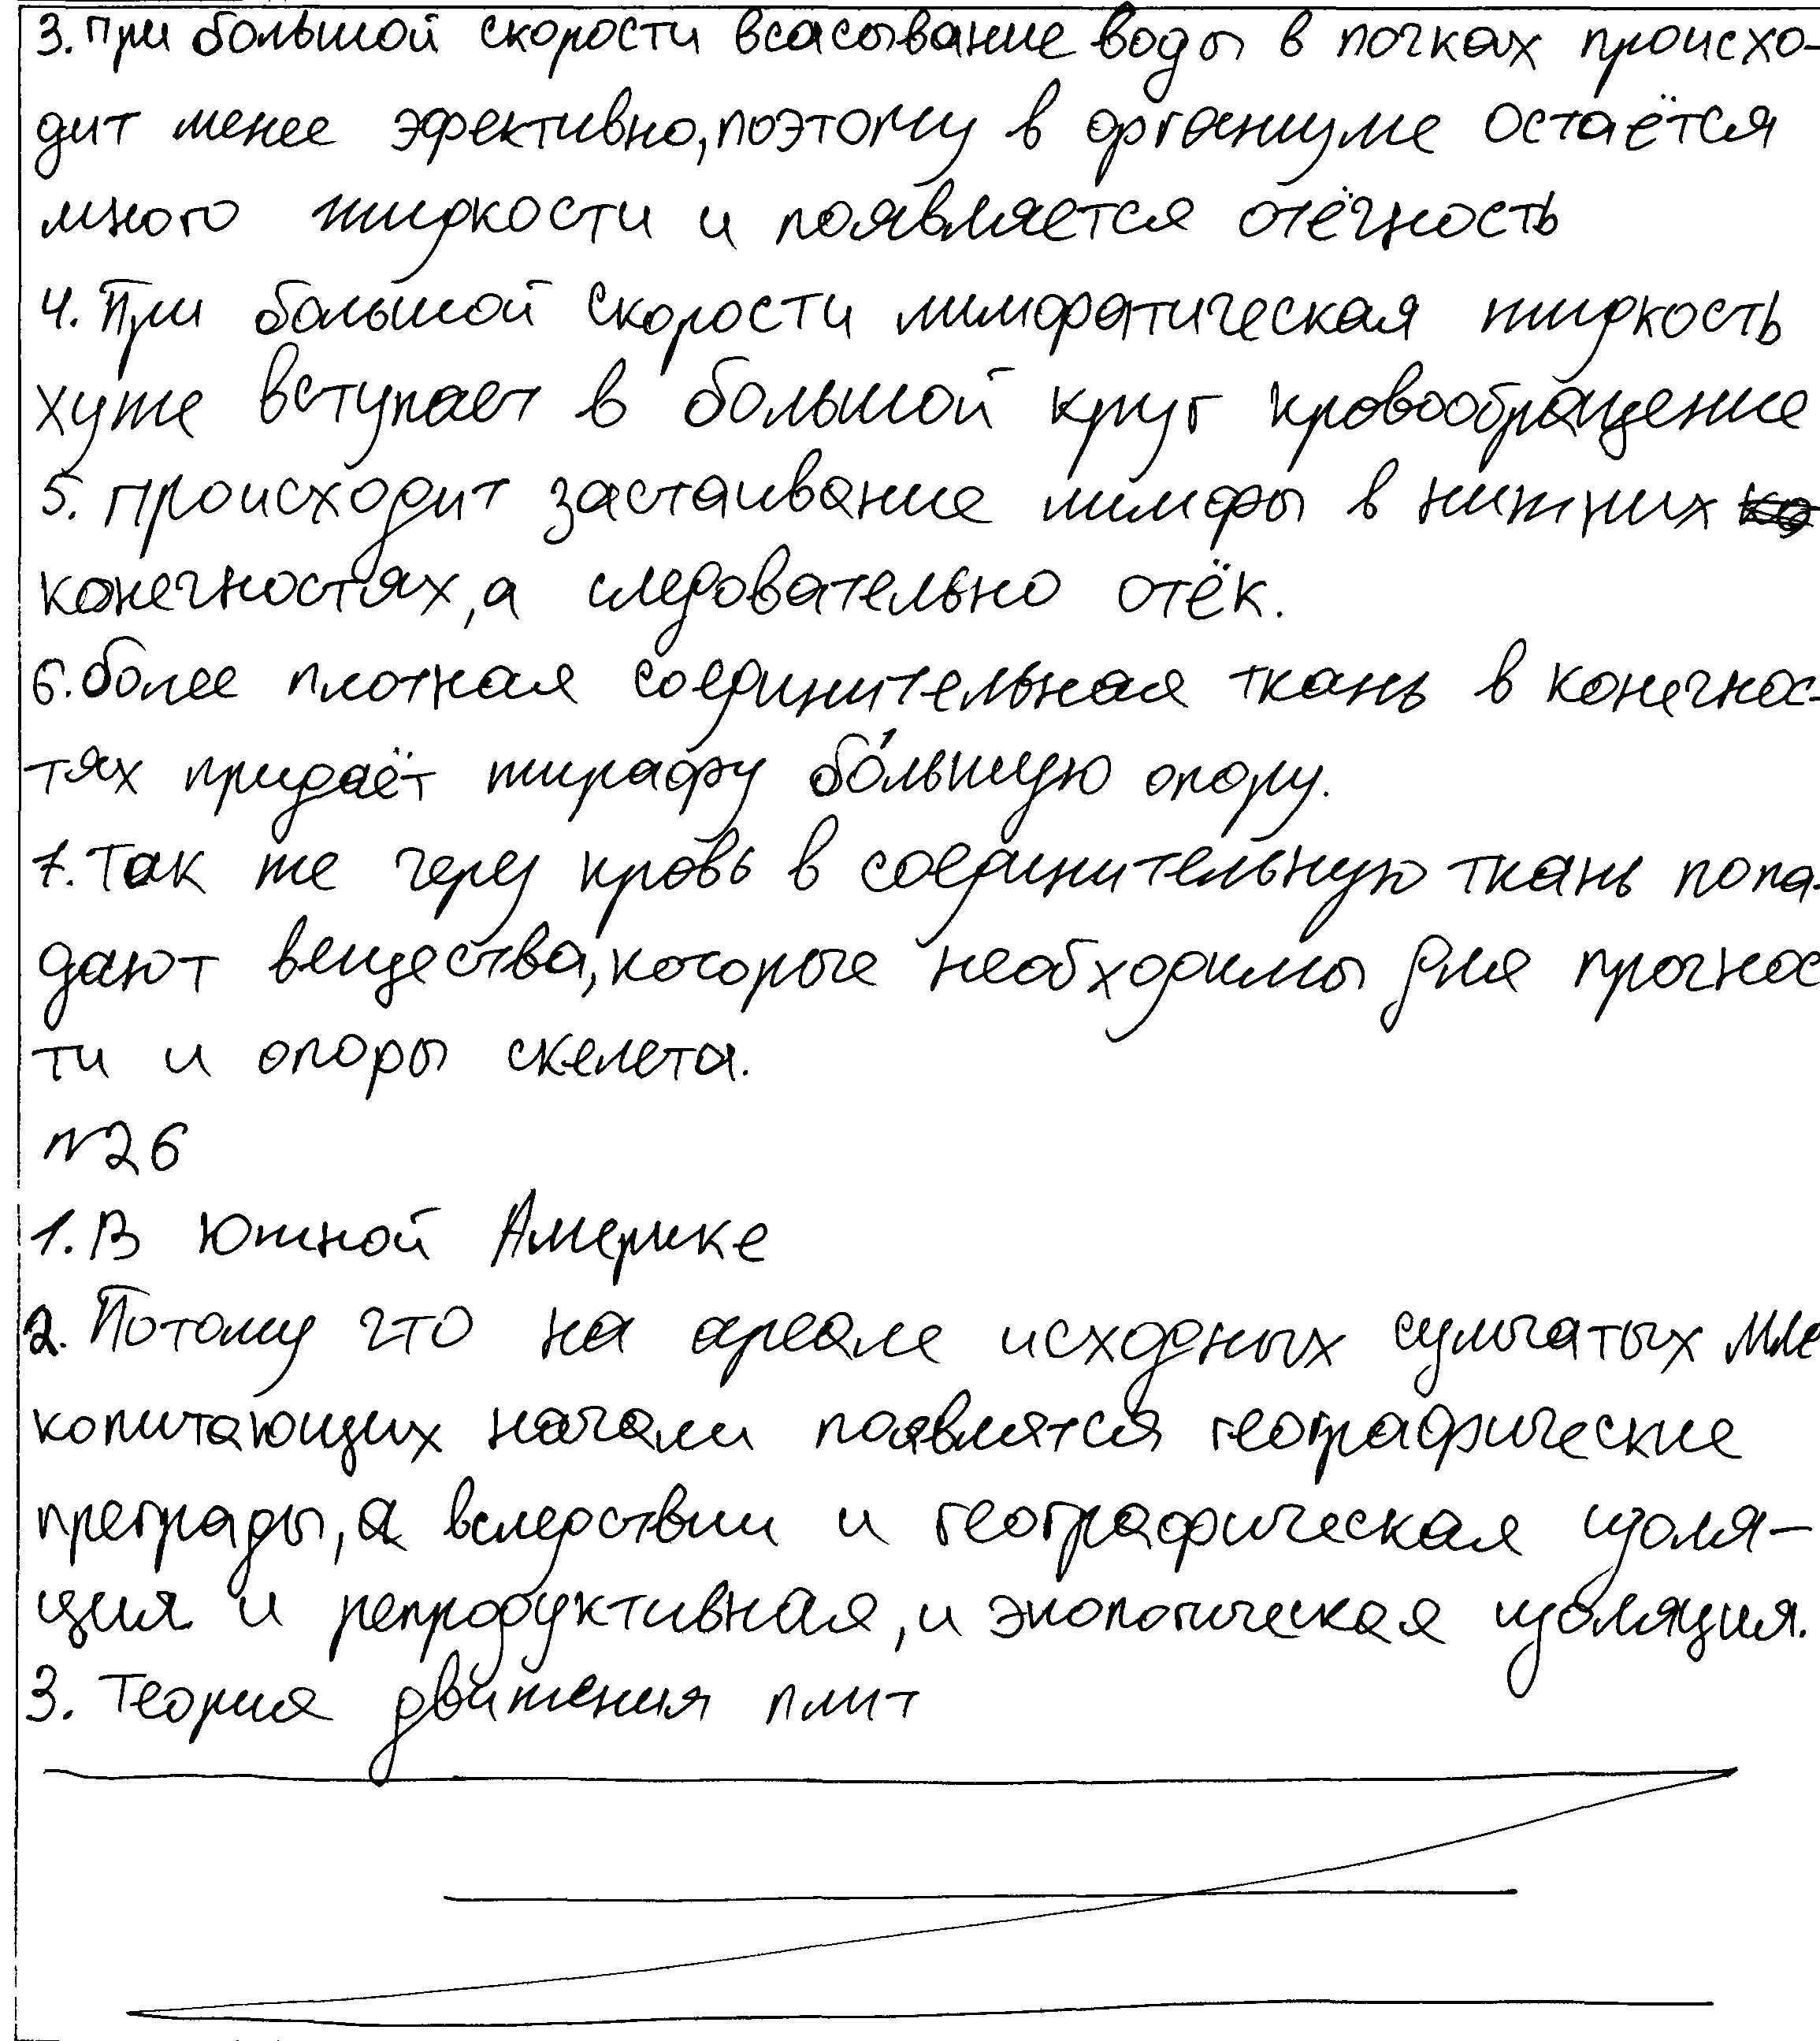 3. При большой скорости всасывание воды в почках происхо-
дит менее эфективно, поэтому в организме остаётся
много жидкости и появляется отёчность
4. При большой скорости лимфатическая жидкость
хуже вступает в большой круг кровообращение
5. Происходит застаивание лимфы в нижних
конечностях, а следовательно отёк.
6. более плотная соединительная ткань в конечнос-
тях придаёт жирафу бо́льшую опору.
7. Так же через кровь в соединительную ткань попа-
дают вещества, которые необходимы для прочнос
ти и опоры скелета.
№26
1. В Южной Америке
2. Потому что на ареале исходных сумчатых мле
копитающих начали появлятся географические
преграды, а вследствии и географическая изоля-
ция и репродуктивная, и экологическая изоляция.
3. Теория движения плит